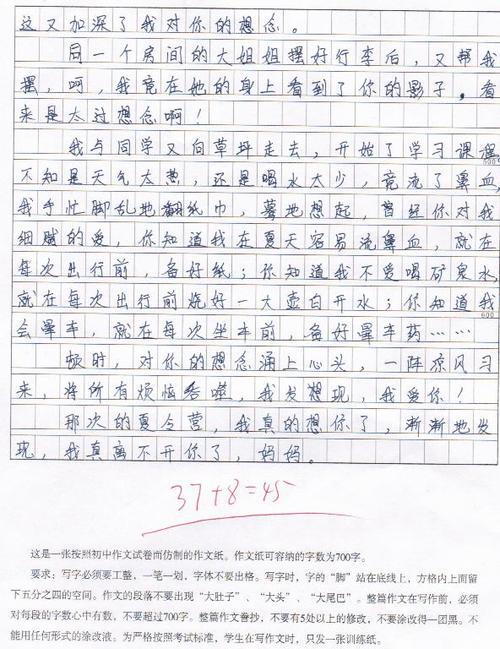 这又加深了我对你的想念。
同一个房间的大姐姐摆好行李后，又帮我
摆，呵，我竟在她的身上看到了你的影子。看
来是太过想念啊！
我与同学又向草坪走去，开始了学习课程
500
不知是天气太热，还是喝水太少，竟流了鼻血，
我手忙脚乱地翻纸巾，蓦地想起，曾经你对我
细腻的爱，你知道我在夏天容易流鼻血，就在
每次出行前，备好纸；你知道我不爱喝矿泉水，
就在每次出行前烧好一大壶白开水；你知道我
600
会晕车，就在每次坐车前，备好晕车药……
顿时，对你的想念涌上心头，一阵凉风习
来，将所有烦恼吞噬，我发想现，我爱你！
那次的夏令营，我真的想你了，渐渐地发
现，我真离不开你了，妈妈。
37+8=45
这是一张按照初中作文试卷而仿制的作文纸。作文纸可容纳的字数为700字。
要求：写字必须要工整，一笔一划，字体不要出格。写字时，字的“脚”站在底线上，方格内上面留
下五分之四的空间。作文的段落不要出现“大肚子”、“大头”、“大尾巴”。整篇作文在写作前，必须
对每段的字数心中有数，不要超过700字。整篇作文誊抄，不要有5处以上的修改，不要涂改得一团黑。不
能用任何形式的涂改液。为严格按照考试标准，学生在写作文时，只发一张训练纸。